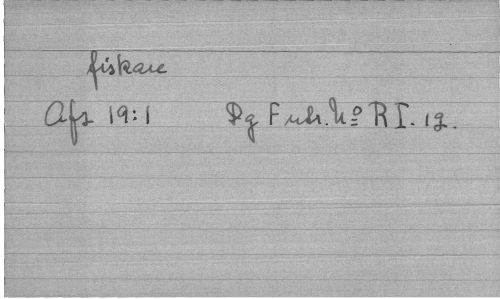 fiskare
Afs 19:1 Pg F rubr. Nº R I. 19.